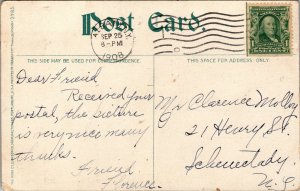 Post Card.
SEP 25
8-PM
1908
THIS SIDE MAY BE USED FOR CORRESPONDENCE
THIS SIDE IS FOR THE ADDRESS
Dear Friend
Received your
postal, the picture
is very nice many
thanks.
Friend
Florence.
Mr Clarence Molloy
21 Henry St.
Schenectady
N.Y.